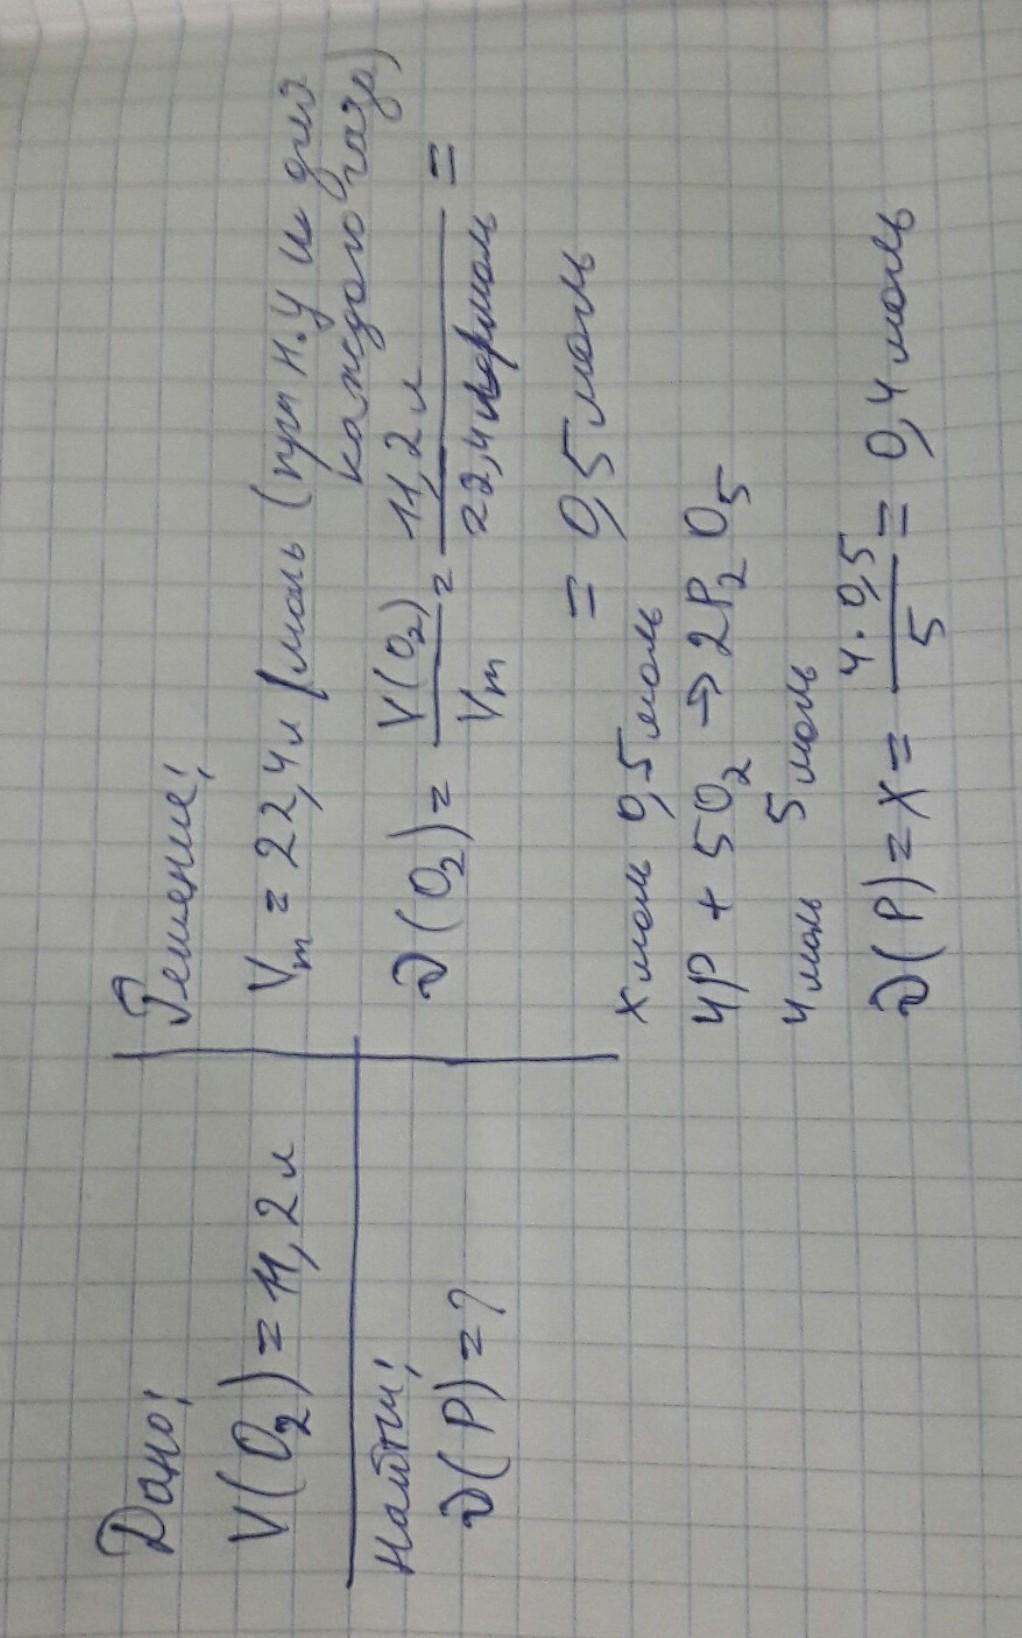 Дано:
V(O₂) = 11,2 л
Найти:
ν(P) = ?
Решение:
Vₘ = 22,4 л/моль (при н.у и для
каждого газа)
ν(O₂) = V(O₂)/Vₘ = 11,2 л/22,4 л/моль =
= 0,5 моль
x моль 0,5 моль
4P + 5O₂ → 2P₂O₅
4 моль 5 моль
ν(P) = x = 4·0,5/5 = 0,4 моль